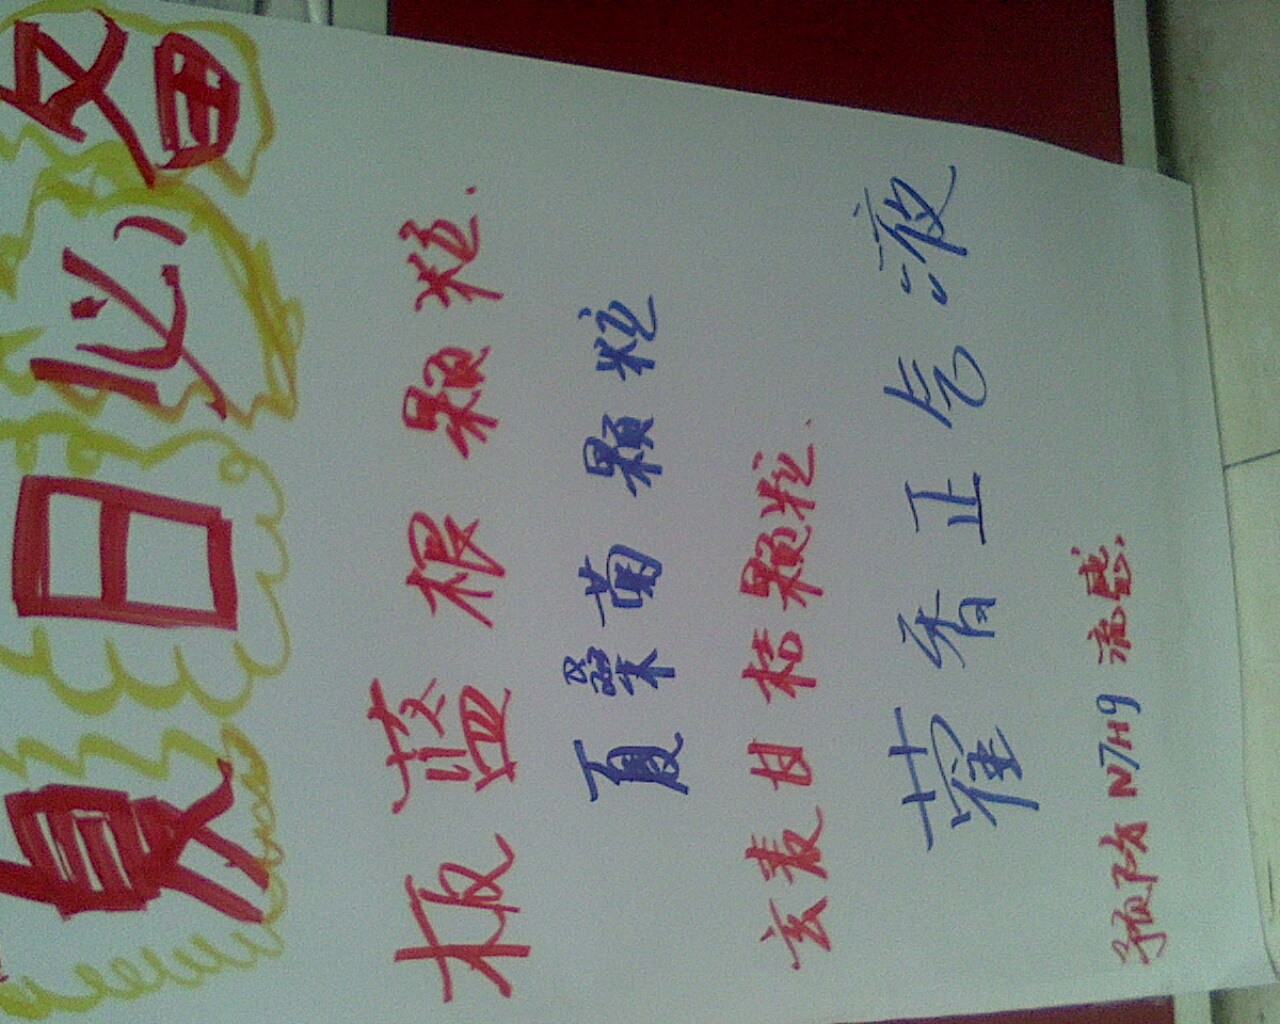 夏日必备
板蓝根颗粒.
夏桑菊颗粒
玄麦甘桔颗粒.
藿香正气液
预防N7H9流感.